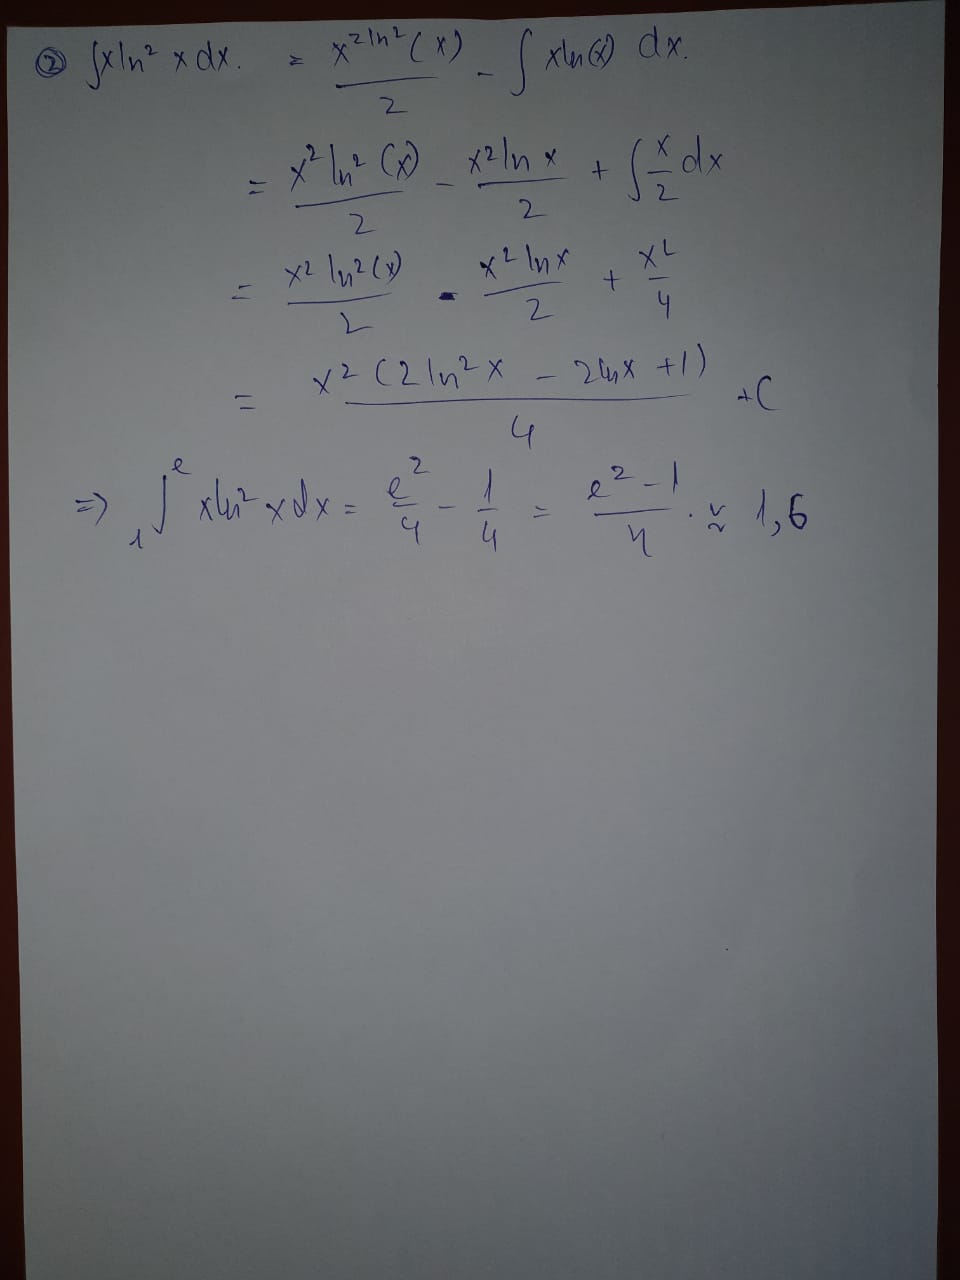 ② ∫xln² x dx. = x² ln² (x) / 2 - ∫ xln(x) dx.
= x² ln² (x) / 2 - x² ln x / 2 + ∫ x/2 dx
= x² ln² (x) / 2 - x² ln x / 2 + x² / 4
= x² (2 ln² x - 2 ln x + 1) / 4 + C
=> ₁∫ᵉ xln² x dx = e² / 4 - 1 / 4 = e² - 1 / 4 . ≈ 1,6